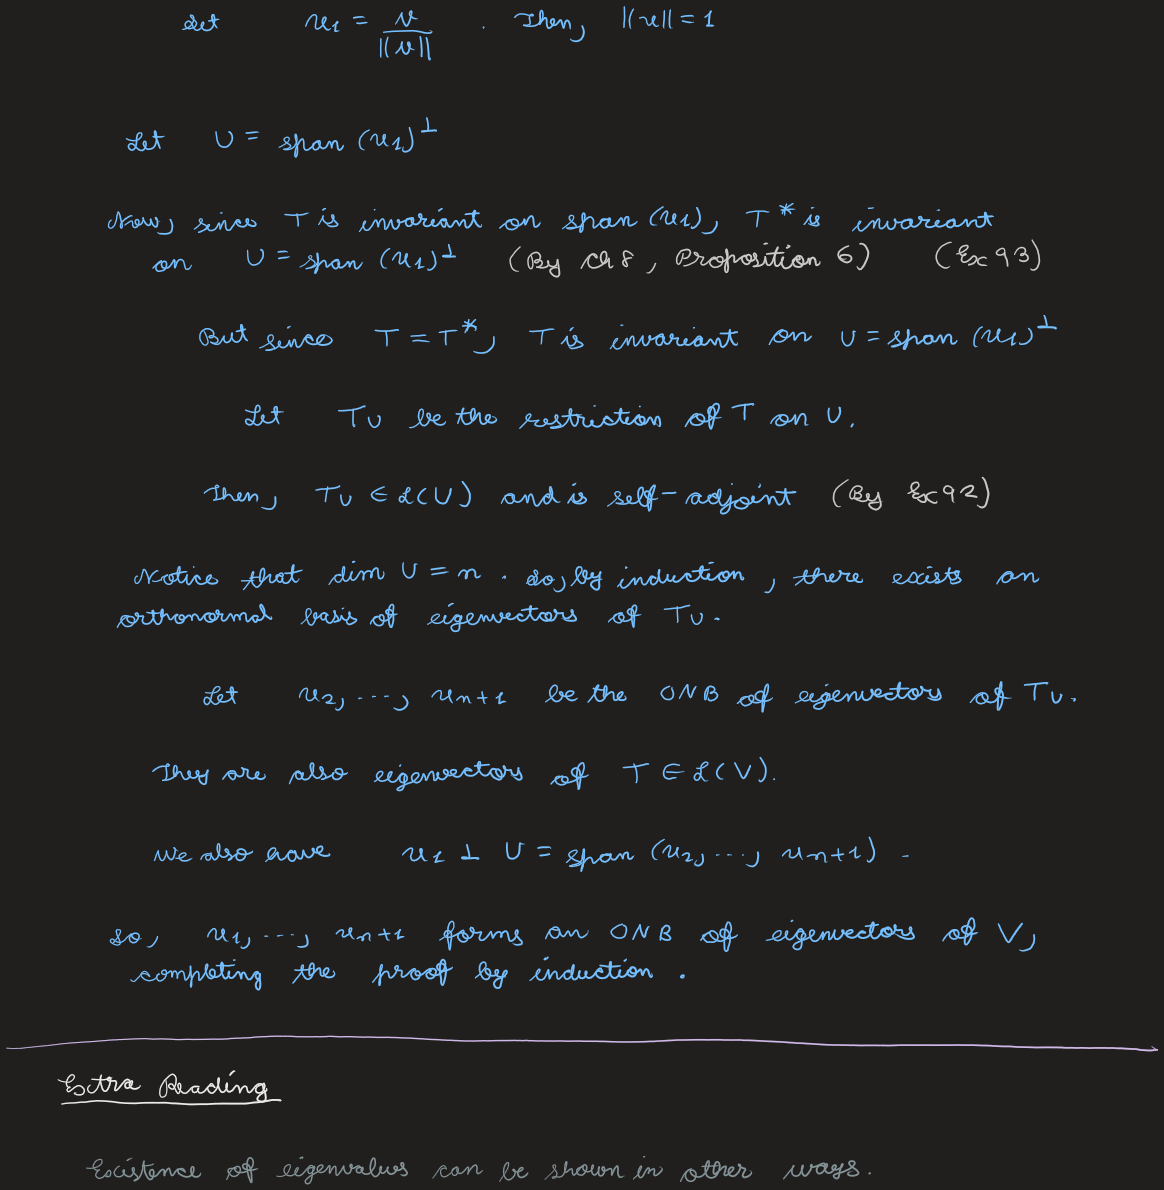 Set u₁ = v / ||v|| . Then, ||u|| = 1
Let U = span (u₁)^⊥
Now, since T is invariant on span (u₁), T* is invariant
on U = span (u₁)^⊥ (By Ch 8, Proposition 6) (Ex 93)
But since T = T*, T is invariant on U = span (u₁)^⊥
Let T_U be the restriction of T on U.
Then, T_U ∈ L(U) and is self-adjoint (By Ex 92)
Notice that dim U = n. So, by induction, there exists an
orthonormal basis of eigenvectors of T_U.
Let u₂, ..., uₙ₊₁ be the ONB of eigenvectors of T_U.
They are also eigenvectors of T ∈ L(V).
We also have u₁ ⊥ U = span (u₂, ..., uₙ₊₁).
So, u₁, ..., uₙ₊₁ forms an ONB of eigenvectors of V,
completing the proof by induction.
Extra Reading
Existence of eigenvalues can be shown in other ways.